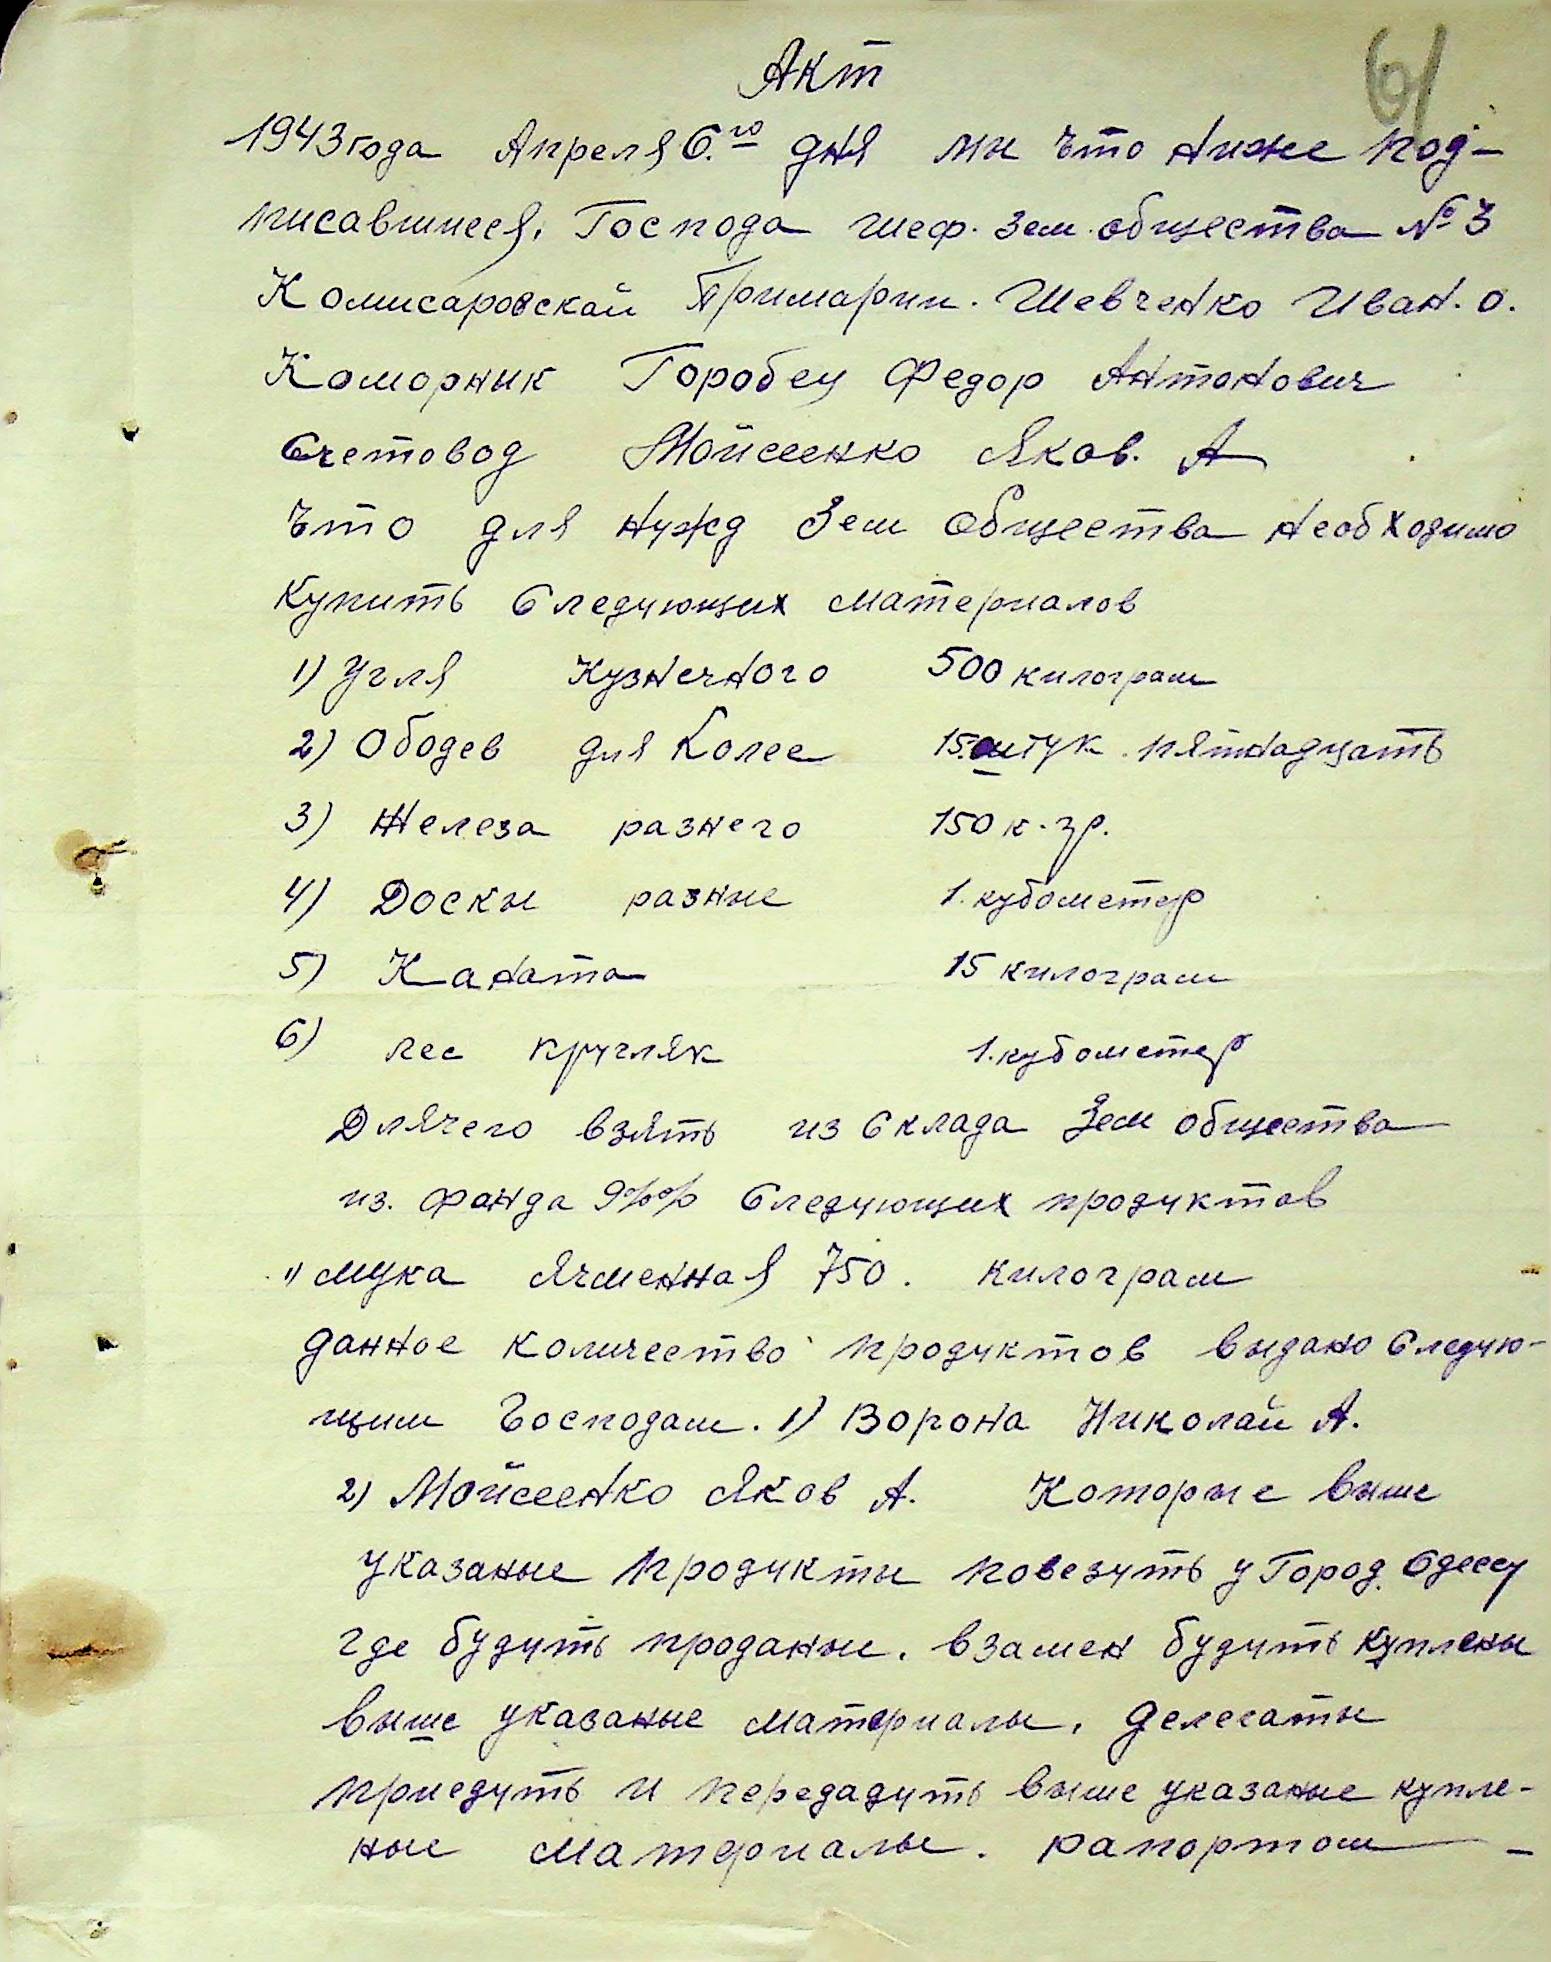 61
Акт
1943 года Апреля 6.го дня мы что ниже под-
писавшиеся, Господа шеф. зем. общества № 3
Комисаровской Примарии. Шевченко Иван. О.
Коморник Горобец Федор Антонович
Счетовод Мойсеенко Яков. А
что для нужд Зем общества необходимо
купить следующих материалов
1) Угля Кузнечного 500 килограм
2) Ободев для колес 15 штук. пятнадцать
3) Железа разнего 150 к. гр.
4) Доскы разные 1. кубометер
5) Каната 15 килограм
6) лес кругляк 1. кубометер
Длячего взять из склада Зем общества
из. фонда 9%% следующих продуктов
1) мука ячменная 750. килограм
данное количество продуктов выдано следую-
щим Господам. 1) Ворона Николай А.
2) Мойсеенко Яков А. Которые выше
указаные продукты повезуть у Город. Одессу
где будуть проданые. взамен будуть куплены
выше указаные материалы, делегаты
приедуть и передадуть выше указаные купле-
ные материалы. рапортом –